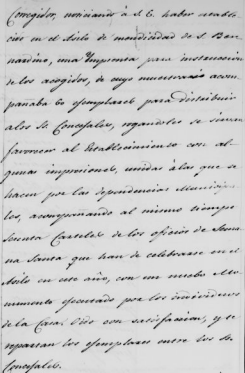 Corregidor, noticiando á S. E. haber estable-
cido en el Asilo de mendicidad de S. Ber-
nardino, una Imprenta para instruccion
de los acogidos, de cuyo necesario acom-
pañaba 60 ejemplares para distribuir
á los SS. Concejales, rogandoles se sirvan
favorecer al Establecimiento con al-
gunas impresiones, unidas á las que se
hacen por las dependencias Municipa-
les, acompañando al mismo tiempo
sesenta Carteles de los oficios de Sema-
na Santa que han de celebrarse en el
Asilo en este año, con un nuevo Mo-
numento ejecutado por los individuos
de la Casa. Oido con satisfaccion, y se
repartan los ejemplares entre los SS.
Concejales.